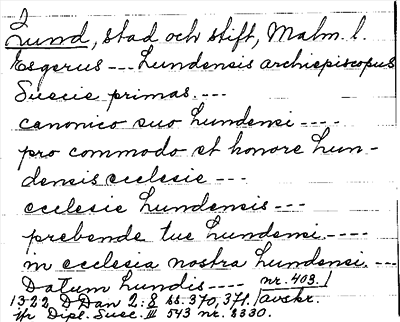 Lund, stad och stift, Malm. l.
Esgerus --- Lundensis archiepiscopus
Suecie primas. ---
canonico suo Lundensi ----
pro commodo et honore Lun-
densis ecclesie ---
ecclesie Lundensis ---
prebende tue Lundensi ----
in ecclesia nostra Lundensi. ---
Datum Lundis ---- nr. 403.
1322 D Dan 2:8 ss. 370, 371. avskr.
Jfr Dipl. Suec. III 543 nr. 2330.